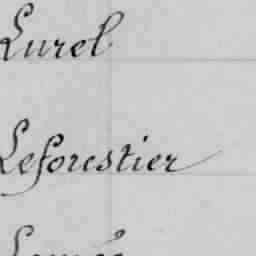 Lurel
Leforestier